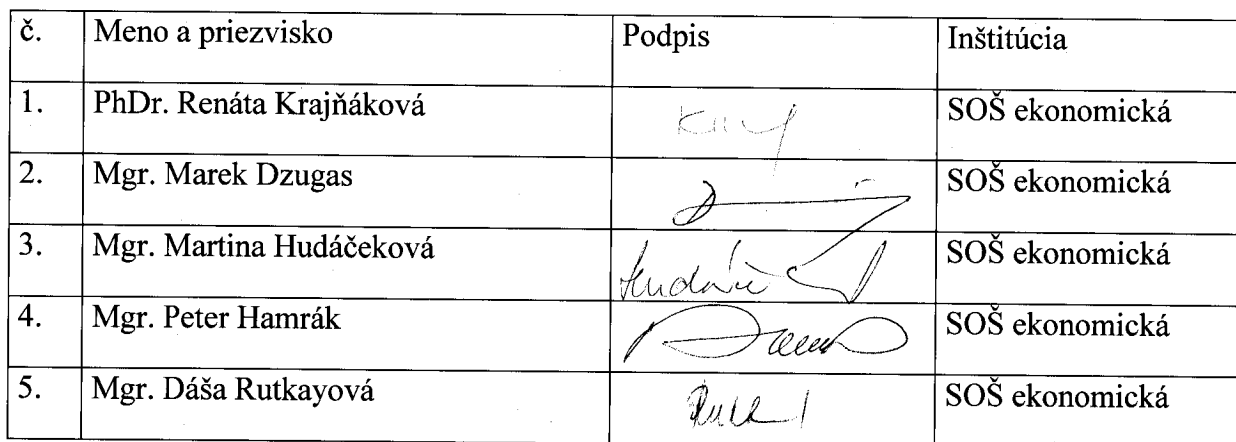 č. Meno a priezvisko Podpis Inštitúcia
1. PhDr. Renáta Krajňáková SOŠ ekonomická
2. Mgr. Marek Dzugas SOŠ ekonomická
3. Mgr. Martina Hudáčeková SOŠ ekonomická
4. Mgr. Peter Hamrák SOŠ ekonomická
5. Mgr. Dáša Rutkayová SOŠ ekonomická